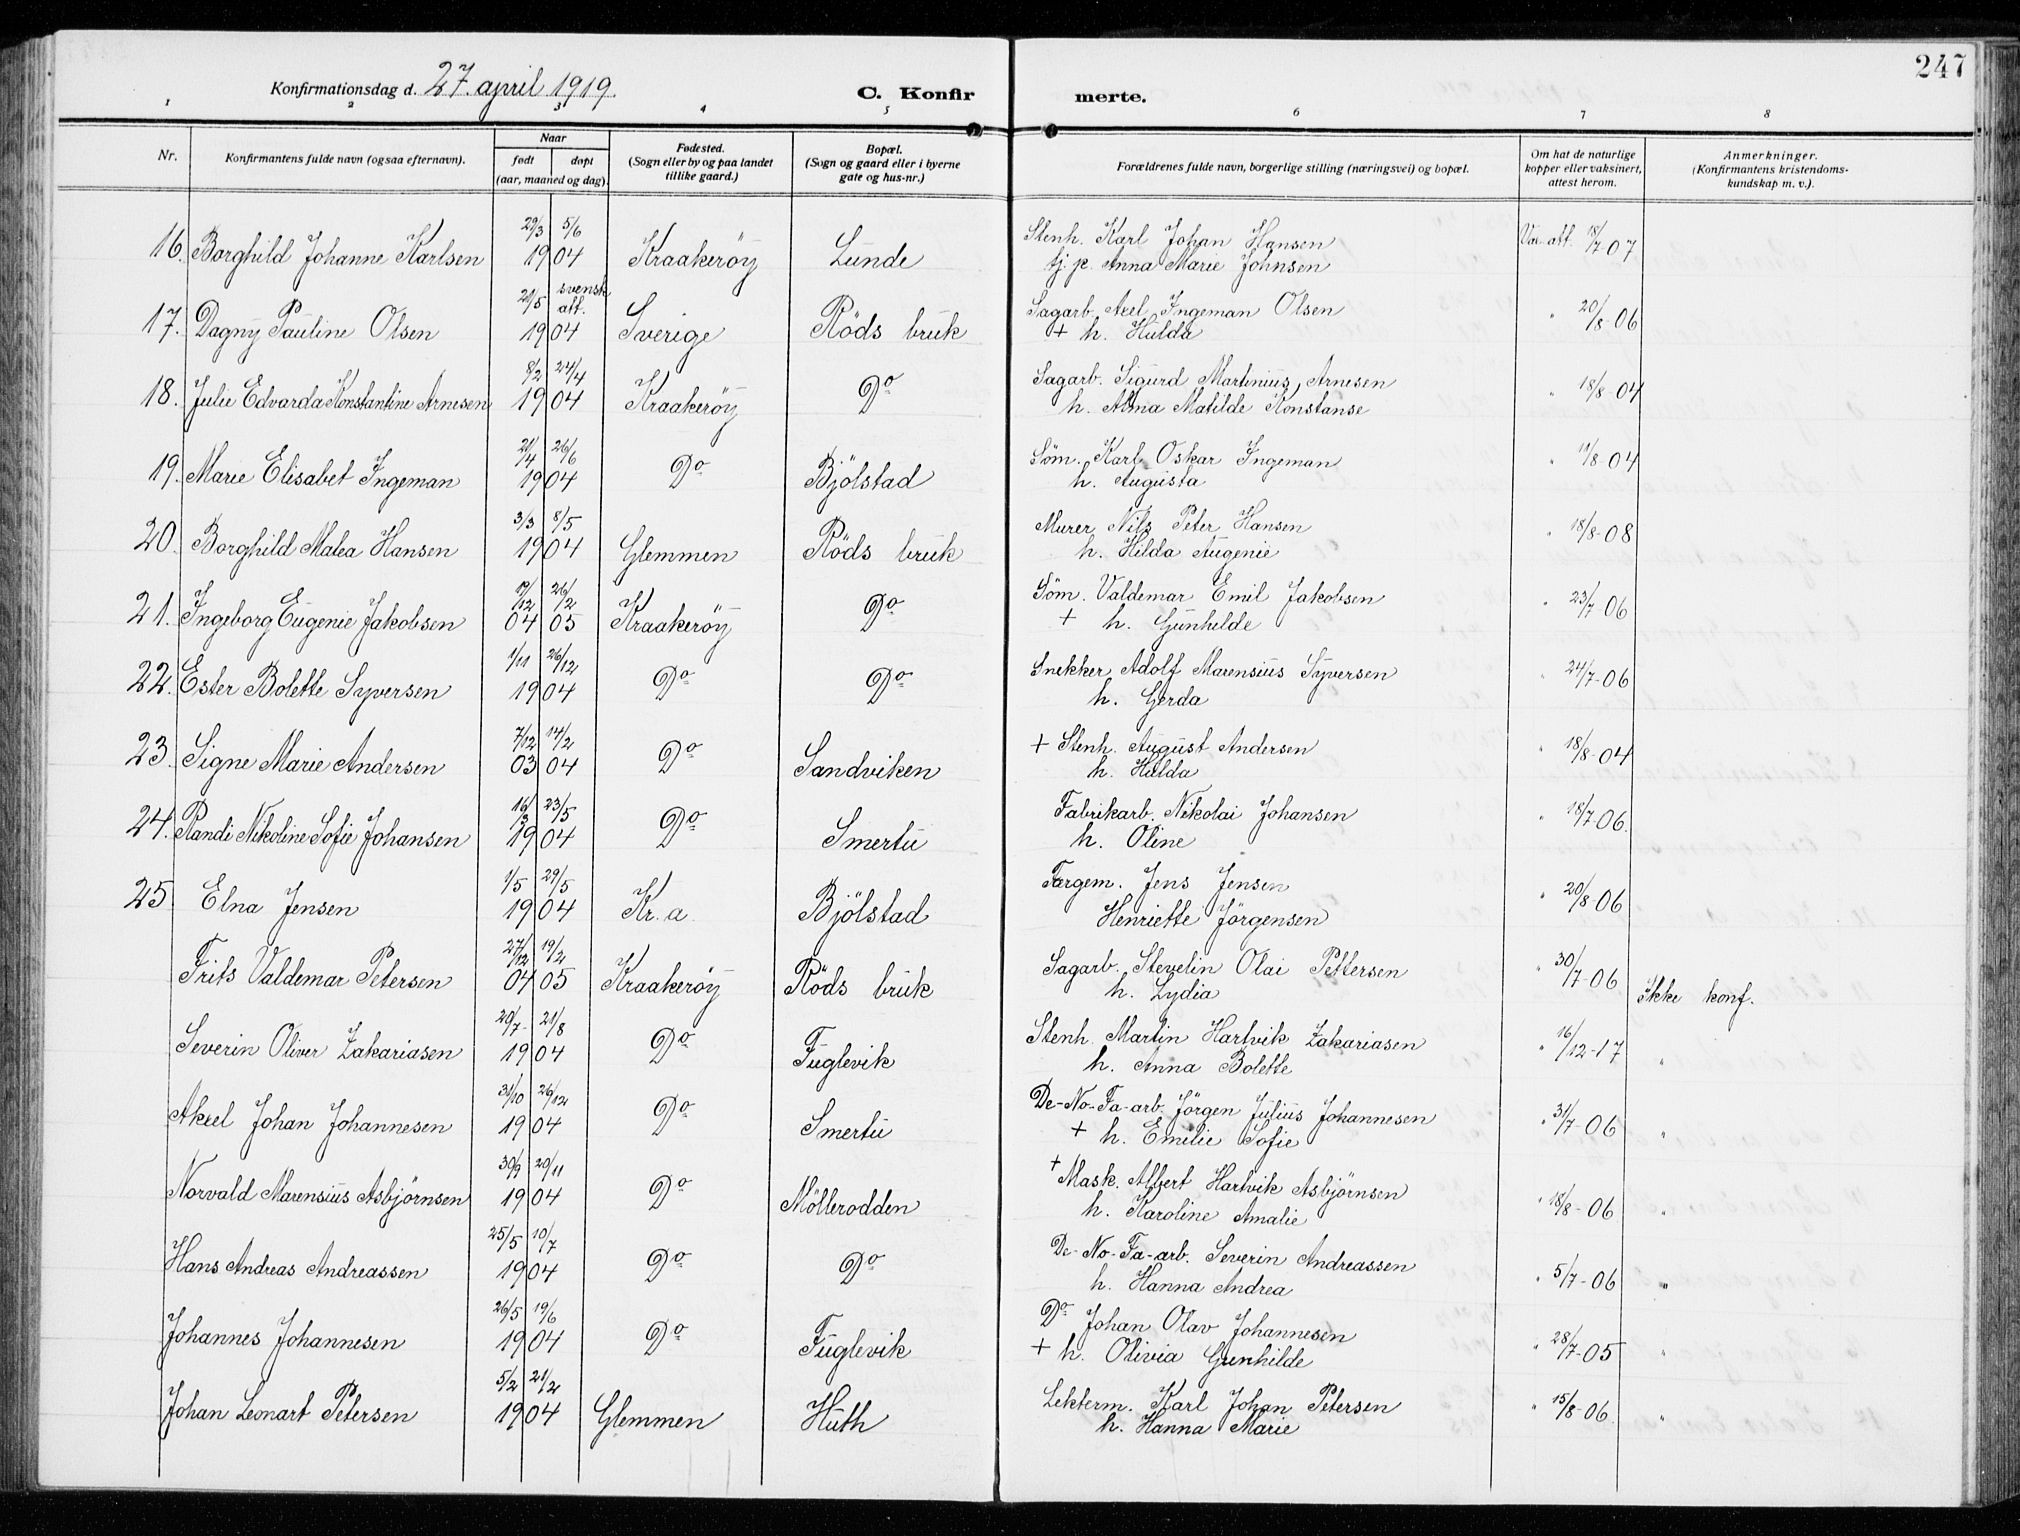 247
Konfirmationsdag d. 27. april 1919.
C. Konfir merte.
1 2 3 4 5 6 7 8
Nr.
Konfirmantens fulde navn (ogsaa efternavn).
Naar
født døpt
(aar, maaned og dag).
Fødested.
(Sogn eller by og paa landet
tillike gaard.)
Bopæl.
(Sogn og gaard eller i byerne
gate og hus-nr.)
Forældrenes fulde navn, borgerlige stilling (næringsvei) og bopæl.
Om hat de naturlige
kopper eller vaksinert,
attest herom.
Anmerkninger.
(Konfirmantens kristendoms-
kundskap m. v.).
29/3 5/6 Stenh. Karl Johan Hansen Vac. att. 18/7 07
16. Borghild Johanne Karlsen 1904 Kraakeröy Lunde tj. p. Anna Marie Johnsen
21/5 svensk att. Sagarb. Axel Ingeman Olsen " 20/8-06
17. Dagny Pauline Olsen 1904 Sverige Röds bruk + h. Hulda
8/2 24/4 Sagarb. Sigurd Martinius Arnesen " 18/8-04
18. Julie Edvarda Konstantine Arnesen 1904 Kraakeröy Do h. Alma Matilde Konstanse
21/4 26/6 Söm. Karl Oskar Ingeman " 11/8-04
19. Marie Elisabet Ingeman 1904 Do Bjölstad h. Augusta
3/3 8/5 Murer Nils Peter Hansen " 18/8-08
20. Borghild Malea Hansen 1904 Glemmen Röds bruk h. Hilda Augenie
19/12 26/2 Söm. Valdemar Emil Jakobsen " 23/7-06
21. Ingeborg Eugenie Jakobsen 04 05 Kraakeröy Do + h. Gunhilde
1/11 26/12 Snekker Adolf Marensius Syversen " 24/7-06
22. Ester Bolette Syversen 1904 Do Do h. Gerda
7/12 14/2 + Stenh. August Andersen " 18/8-04
23. Signe Marie Andersen 03 04 Do Sandviken h. Hulda
16/3 23/5 Fabrikarb. Nikolai Johansen " 18/7-06.
24. Randi Nikoline Sofie Johansen 1904 Do Smertu h. Oline
1/5 29/5 Færgem. Jens Jensen " 20/8-06
25 Elna Jensen 1904 Kr.a. Bjölstad Henriette Jörgensen
27/12 19/2 Sagarb. Stevelin Olai Pettersen " 30/7-06
Frits Valdemar Petersen 04 05 Kraakeröy Röds bruk h. Lydia Ikke konf.
20/7 21/8 Stenh. Martin Hartvik Zakariasen " 16/12-17
Severin Oliver Zakariasen 1904 Do Fuglevik h. Anna Bolette "
31/10 26/12 De-No-Fa-arb. Jörgen Julius Johannesen " 31/7-06
Aksel Johan Johannesen 1904 Do Smertu + h. Emilie Sofie "
30/9 20/11 + Mask. Albert Hartvik Asbjörnsen " 18/8-06
Norvald Marensius Asbjörnsen 1904 Do Möllerodden h. Karoline Amalie "
25/5 10/7 De-No-Fa-arb. Severin Andreassen " 5/7-06
Hans Andreas Andreassen 1904 Do Do h. Hanna Andrea "
26/5 19/6 Do Johan Olav Johannesen " 28/7-05
Johannes Johannesen 1904 Do Fuglevik + h. Olivia Gunhilde "
5/2 21/2 Lekterm. Karl Johan Petersen " 15/8-06
Johan Leonart Petersen 1904 Glemmen Huth h. Hanna Marie "